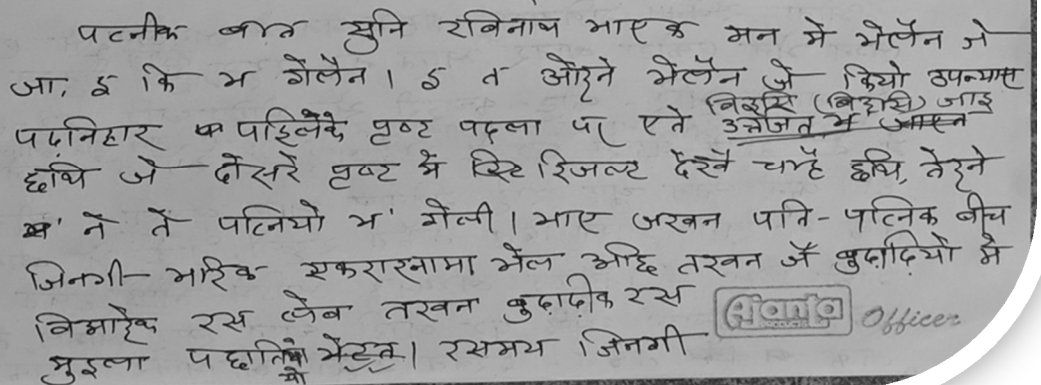 पत्नीक बात सुनि रविनाथ भाएक मन मे भेलैन जे
जा, इ कि भ गेलैन। इ त ओहने भेलैन जे कियो उपन्यास
विहुसि (बिहुसि) जाइ
पढ़निहार क पहिलेके पृष्ट पढ़ला पर एते उत्तेजित भ जाएत
छथि जे दोसरे पृष्ट मे हिट रिजल्ट देखै चाहै छथि, तेहने
ने तँ पत्नियो भ' गेली। भाए जखन पति-पत्निक बीच
जिनगी-भरिक एकरारनामा भेल अछि तखन जँ बुढ़ाढ़ियो मे
विआहेक रस लेब तखन बुढ़ाढ़ीक रस
मुइला पछातियो भेटत। रसमय जिनगी
Ajanta Officer